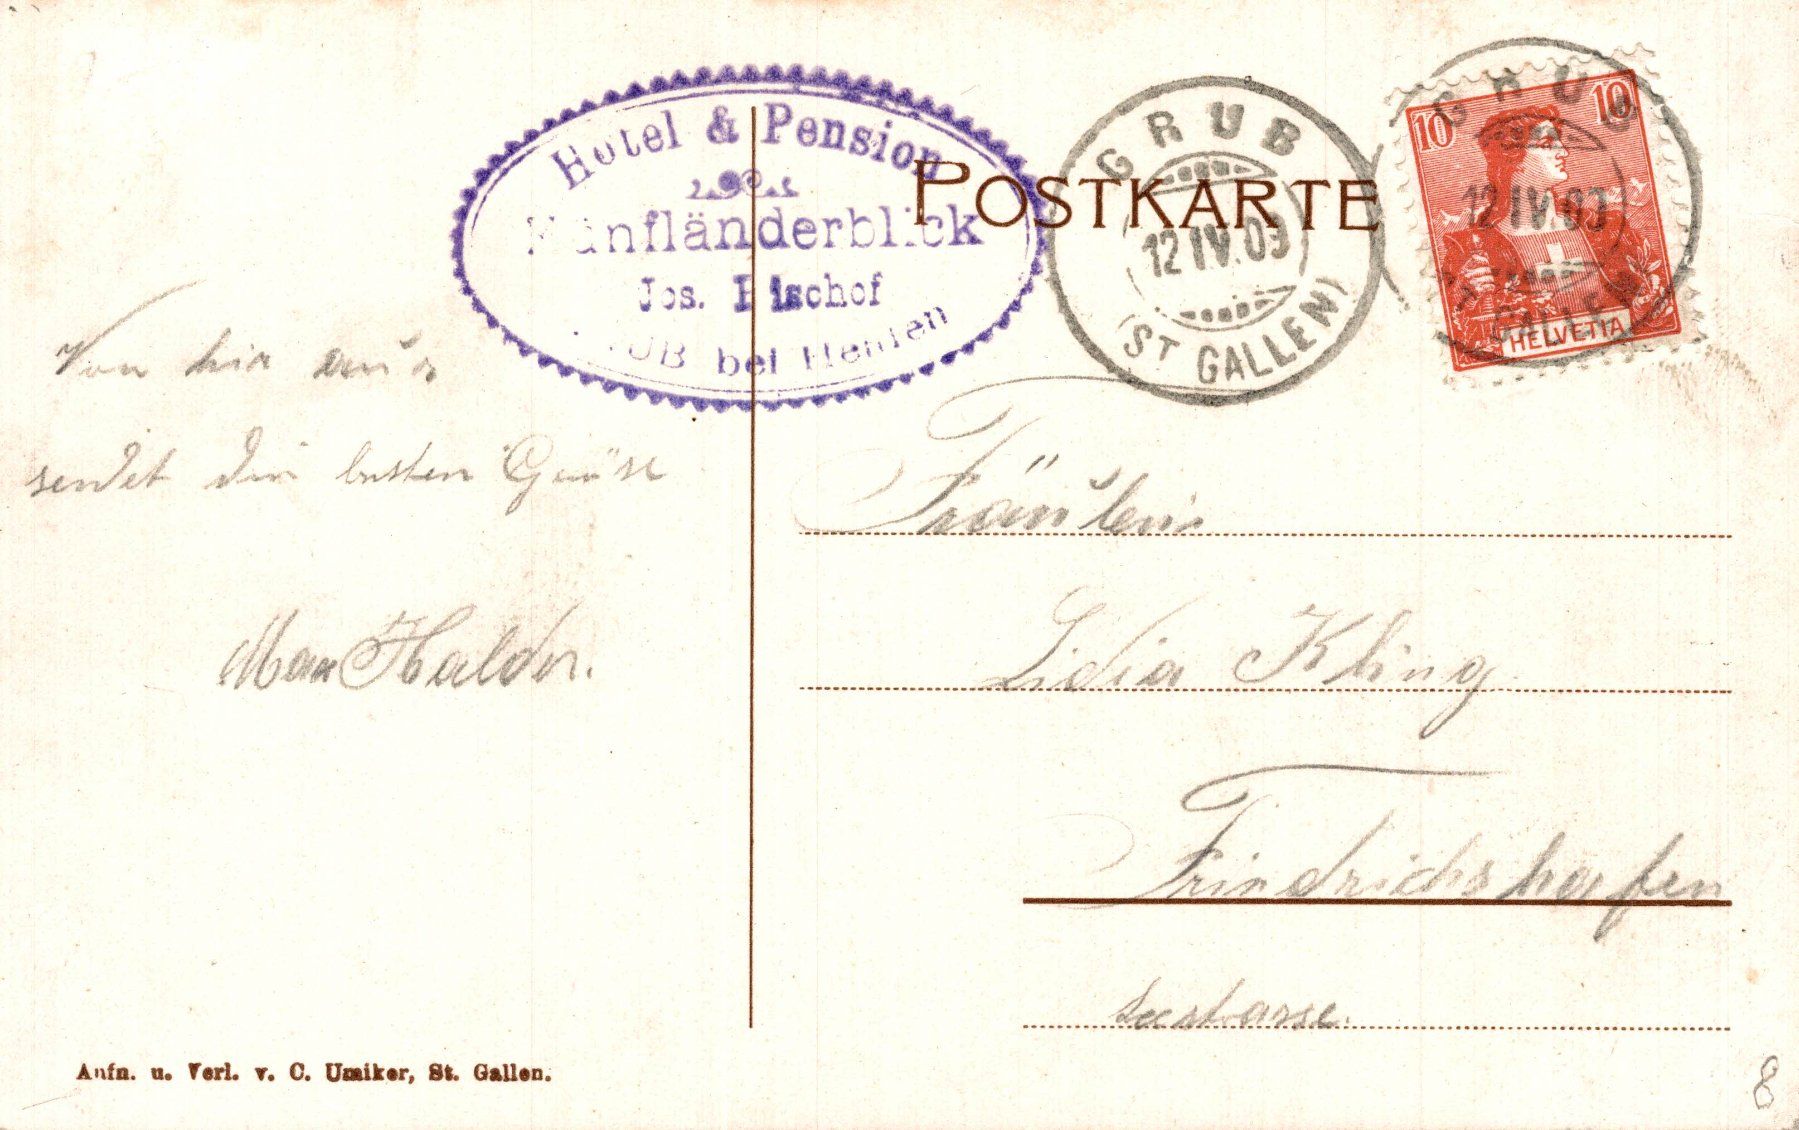 Hotel & Pension
Fünfländerblick
Jos. Bischof
GRUB bei Heiden
POSTKARTE
GRUB
12 IV.09
(ST GALLEN)
GRUB
12 IV.09
ST GALLEN
10 10
HELVETIA
Von hir aus
sendet dir besten Grüse
Max Halder.
Fräulein
Lidia Kling
Friedrichshafen
Seestrasse.
Aufn. u. Verl. v. C. Umiker, St. Gallen.
8